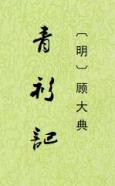 〔明〕顾大典
青衫記